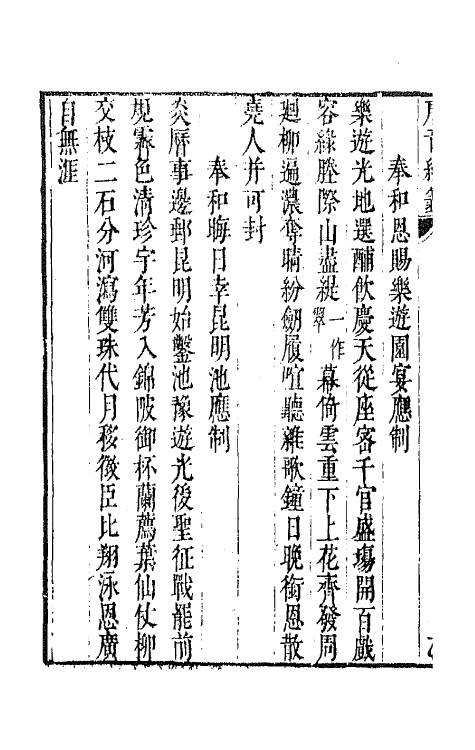 奉和恩賜樂遊園宴應制
樂遊光地選酺飲慶天從座客千官盛塲開百戲
容綠塍際山盡緹一作翠幕倚雲重下上花齊發周
廻柳遍濃奪晴紛劒履喧聽雜歌鐘日晚銜恩散
堯人并可封
奉和晦日幸昆明池應制
炎曆事邊郵昆明始鑿池豫遊光後聖征戰罷前
規霽色清珍宇年芳入錦陂御杯蘭薦葉仙仗柳
交枝二石分河瀉雙珠代月移微臣比翔泳恩廣
自無涯